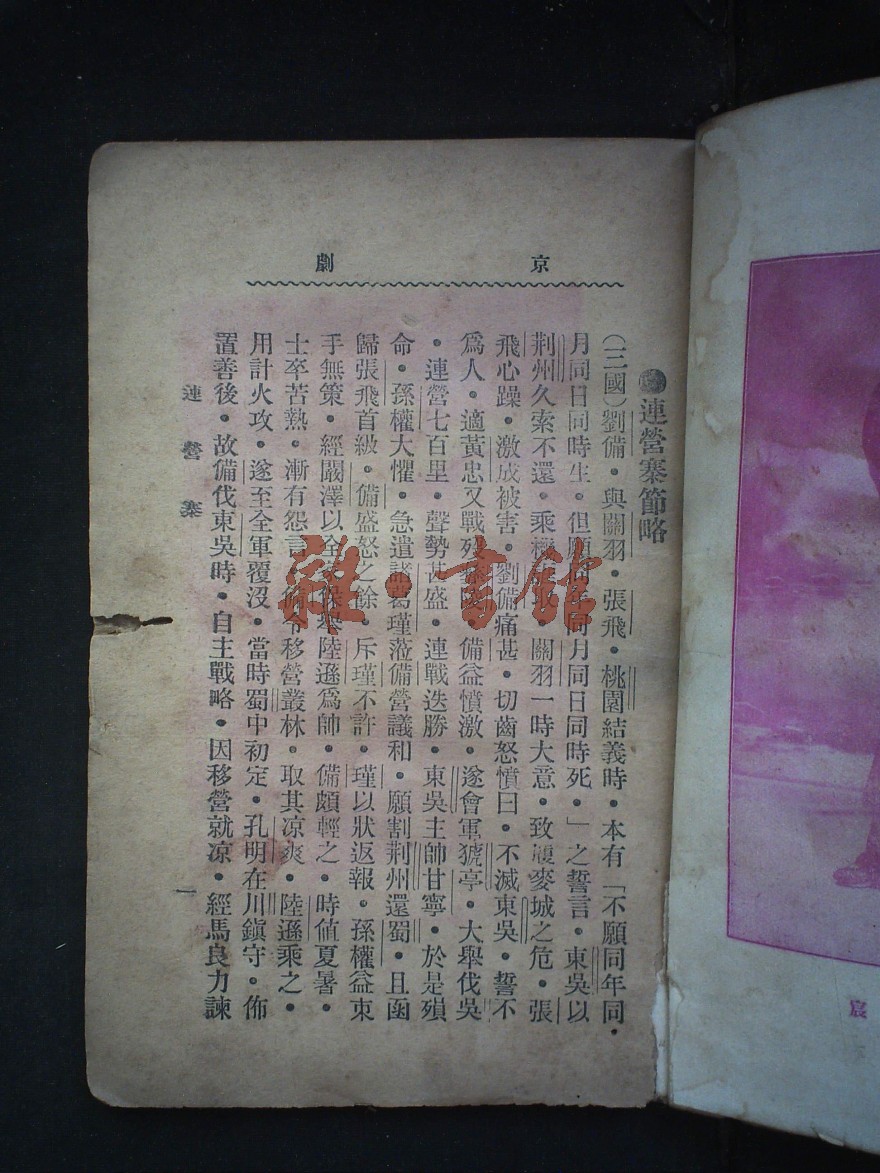 京劇
連營寨節略
（三國）劉備・與關羽・張飛・桃園結義時・本有「不願同年同・
月同日同時生・但願同年同月同日同時死・」之誓言・東吳以
荆州久索不還・乘機・關羽一時大意・致履麥城之危・張
飛心躁・激成被害・劉備痛甚・切齒怒憤曰・不滅東吳・誓不
爲人・適黃忠又戰歿・備益憤激・遂會軍猇亭・大舉伐吳
・連營七百里・聲勢甚盛・連戰迭勝・東吳主帥甘寧・於是殞
命・孫權大懼・急遣諸葛瑾蒞備營議和・願割荆州還蜀・且函
歸張飛首級・備盛怒之餘・斥瑾不許・瑾以狀返報・孫權益束
手無策・經闞澤以全家保舉陸遜爲帥・備頗輕之・時値夏暑・
士卒苦熱・漸有怨言・備令移營叢林・取其凉爽・陸遜乘之・
用計火攻・遂至全軍覆沒・當時蜀中初定・孔明在川鎭守・佈
置善後・故備伐東吳時・自主戰略・因移營就凉・經馬良力諫
連營寨
一
宸
雜・書館